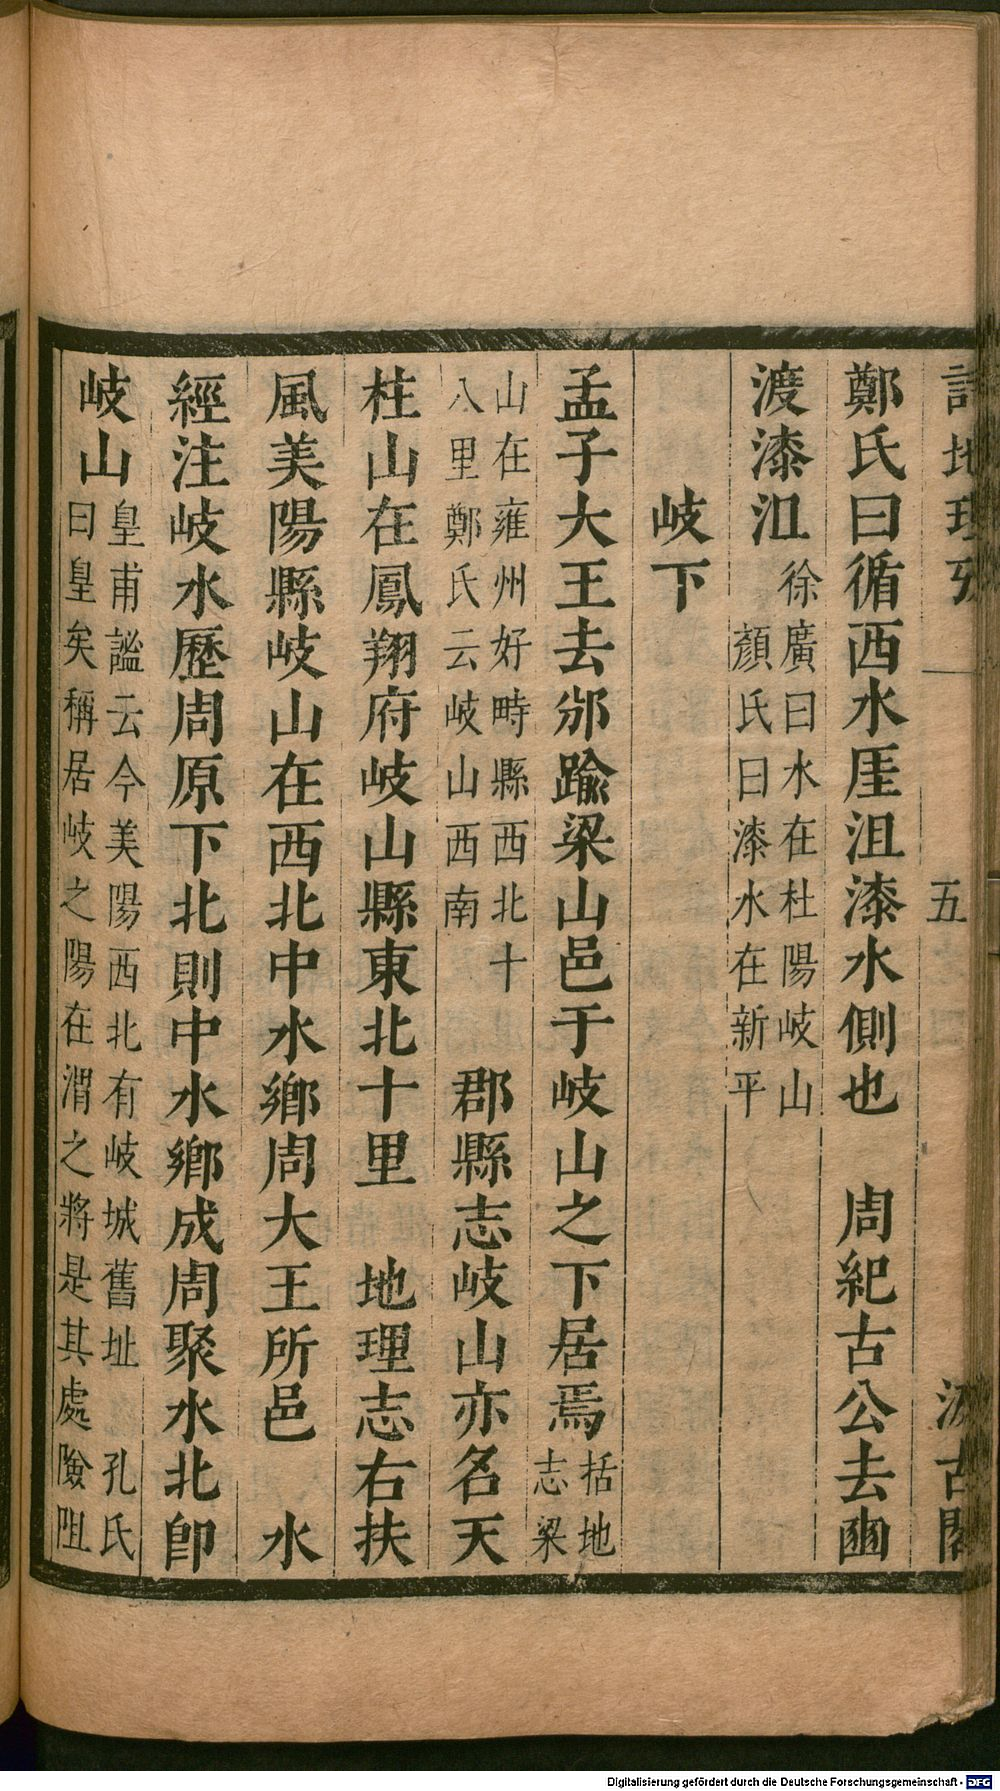 詩地理攷
五
汲古閣
鄭氏曰循西水厓沮漆水側也　周紀古公去豳
渡漆沮徐廣曰水在杜陽岐山
顏氏曰漆水在新平
岐下
孟子大王去邠踰梁山邑于岐山之下居焉括地
志梁
山在雍州好畤縣西北十
八里鄭氏云岐山西南
郡縣志岐山亦名天
柱山在鳳翔府岐山縣東北十里　地理志右扶
風美陽縣岐山在西北中水鄉周大王所邑　水
經注岐水歷周原下北則中水鄉成周聚水北卽
岐山皇甫謐云今美陽西北有岐城舊址　孔氏
曰皇矣稱居岐之陽在渭之將是其處險阻
Digitalisierung gefördert durch die Deutsche Forschungsgemeinschaft - DFG